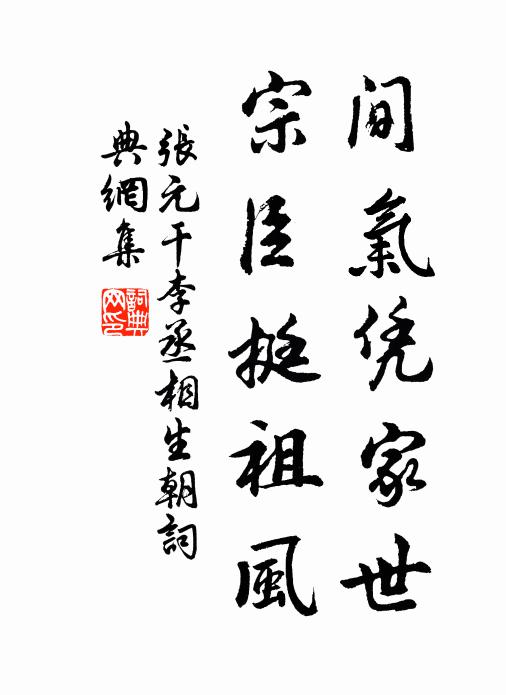 间氣凭家世
宗臣挺祖風
張元干李丞相生朝詞
典網集
詞典网印